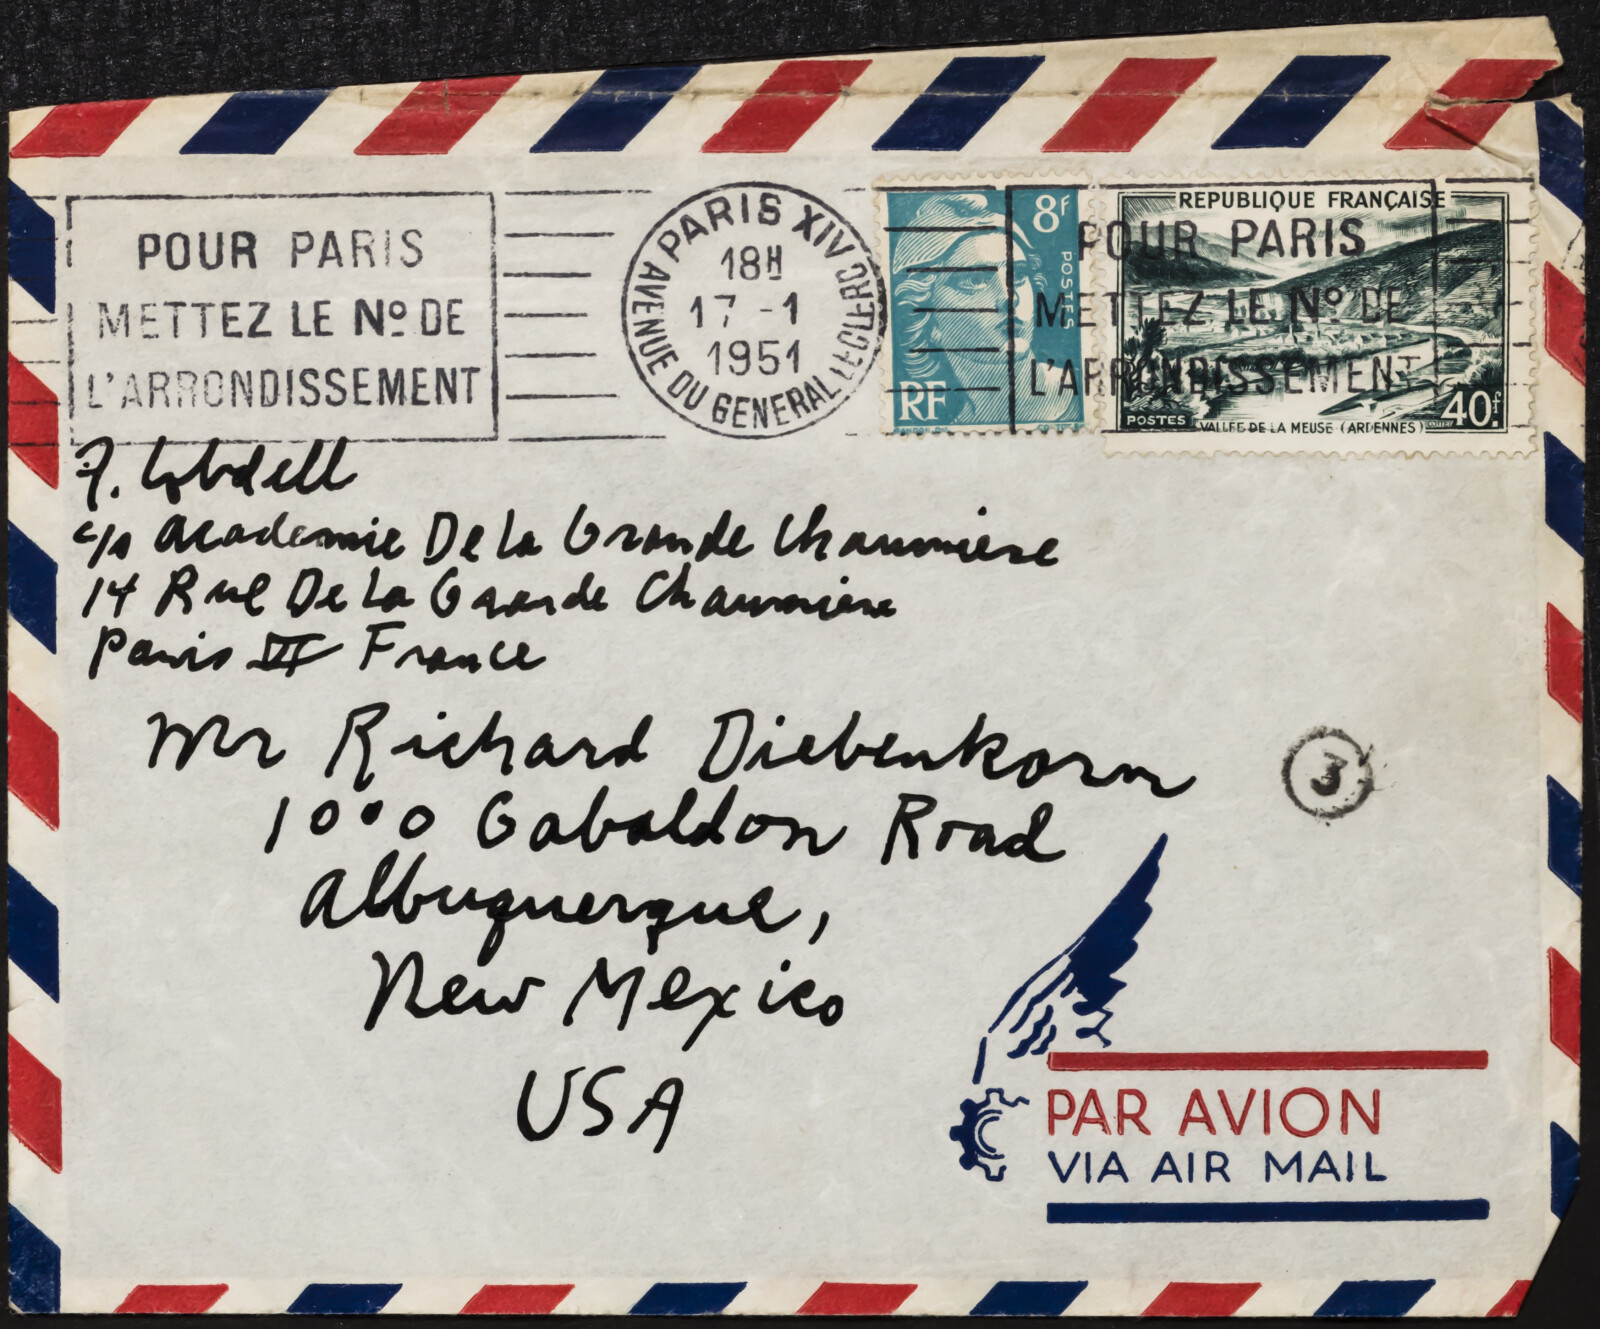 POUR PARIS
METTEZ LE Nº DE
L'ARRONDISSEMENT
PARIS XIV
AVENUE DU GENERAL LECLERC
18H
17 -1
1951
8F
POSTES
RF
REPUBLIQUE FRANÇAISE
POUR PARIS
METTEZ LE Nº DE
L'ARRONDISSEMENT
POSTES
VALLEE DE LA MEUSE (ARDENNES)
40F
F. Lobdell
c/o Academie De La Grande Chaumiere
14 Rue De La Grande Chaumiere
Paris VI France
Mr Richard Diebenkorn
1000 Gabaldon Road
Albuquerque,
New Mexico
USA
3
PAR AVION
VIA AIR MAIL